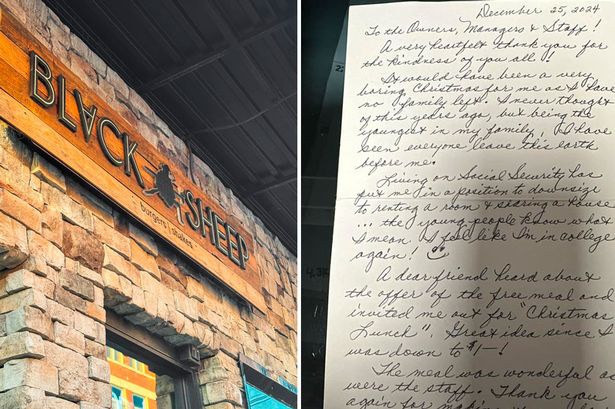 BLACK SHEEP
burgers | shakes
December 25, 2024
To the Owners, Managers & Staff!
A very heartfelt thank you for
the kindness of you all!
It would have been a very
boring Christmas for me as I have
no family left. I never thought
of this years ago, but being the
youngest in my family, I have
seen everyone leave this earth
before me.
Living on Social Security has
put me in a position to downsize
to renting a room & sharing a house
... the young people know what
I mean. I feel like I'm in college
again!
A dear friend heard about
the offer of the free meal and
invited me out for "Christmas
Lunch". Great idea since I
was down to $1—!
The meal was wonderful as
were the staff. Thank you
again for